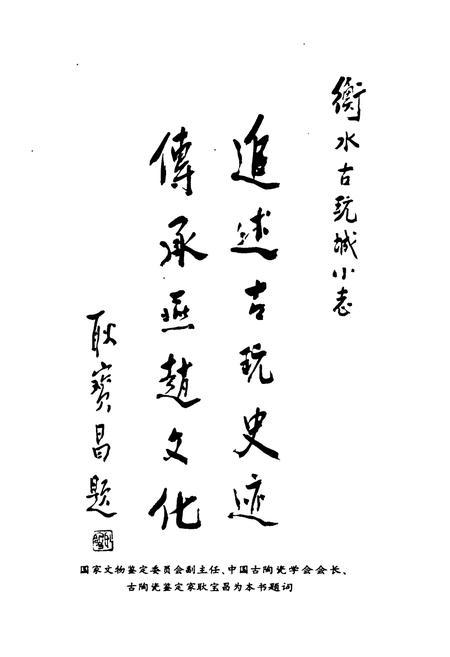 衡水古玩城小志
追述古玩史迹
傳承燕趙文化
耿寶昌題
国家文物鉴定委员会副主任、中国古陶瓷学会会长、
古陶瓷鉴定家耿宝昌为本书题词